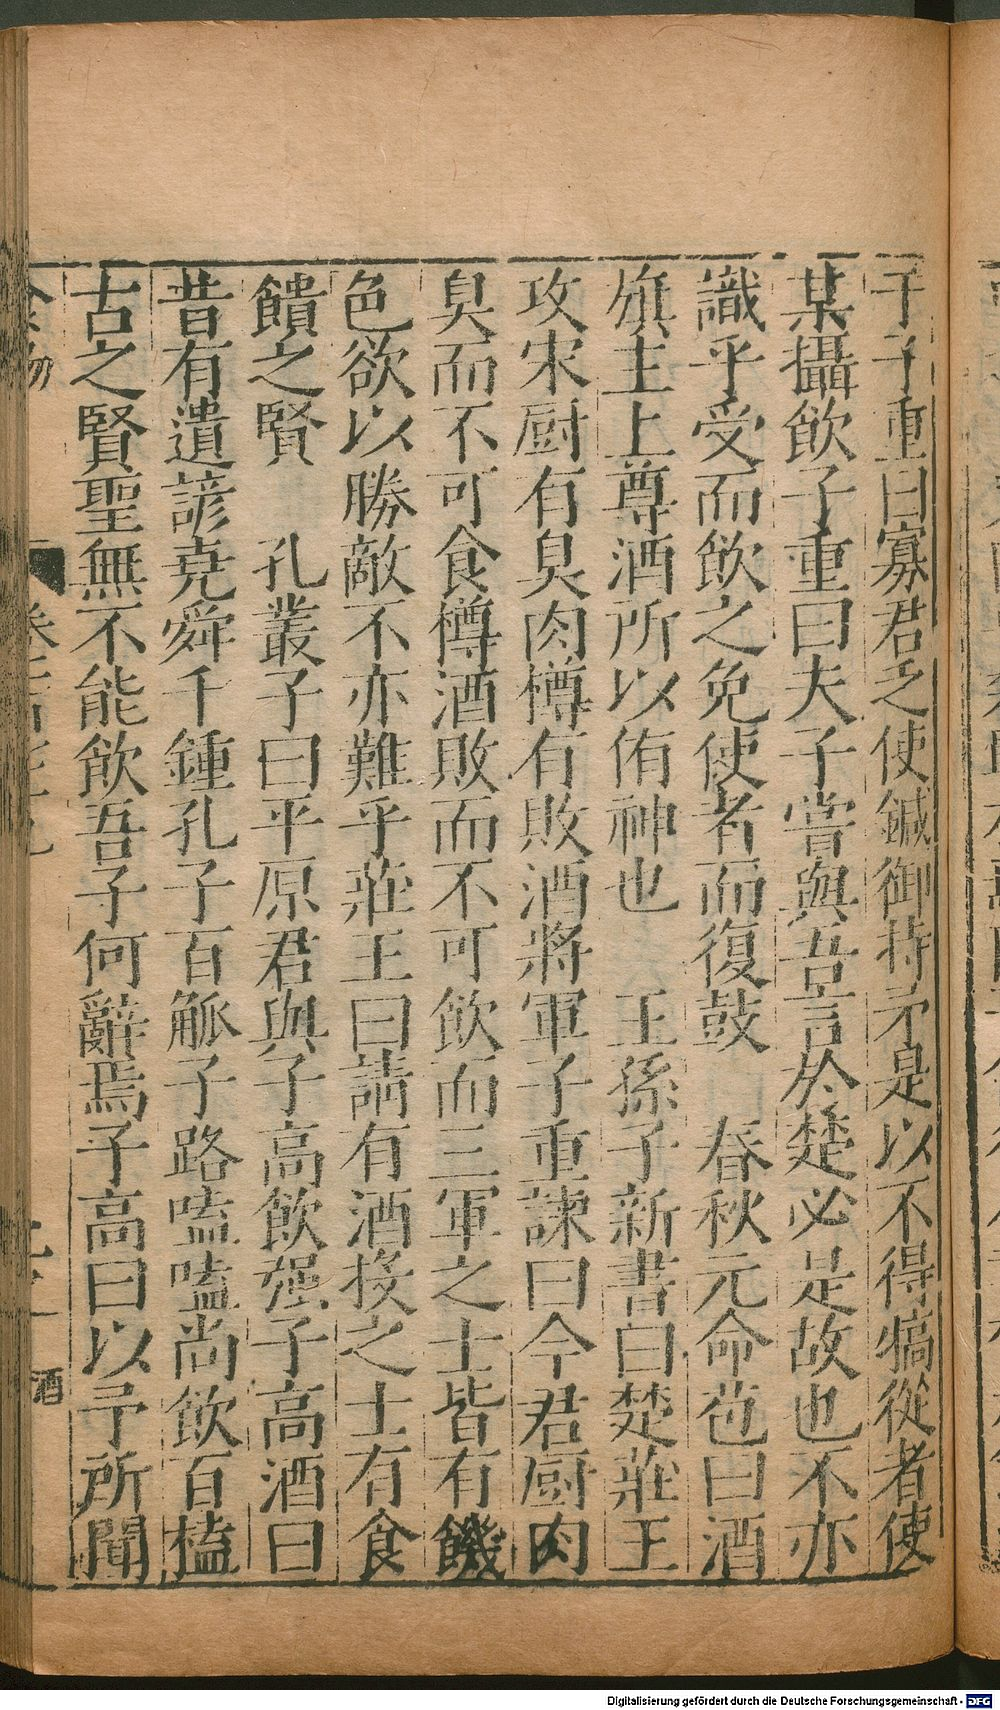 于子重曰寡君乏使鍼御持矛是以不得犒從者使
某攝飲子重曰夫子嘗與吾言於楚必是故也不亦
識乎受而飲之免使者而復鼓　春秋元命苞曰酒
旗主上尊酒所以侑神也　王孫子新書曰楚莊王
攻宋厨有臭肉樽有敗酒將軍子重諫曰今君厨肉
臭而不可食樽酒敗而不可飲而三軍之士皆有饑
色欲以勝敵不亦難乎莊王曰請有酒投之士有食
饋之賢　孔叢子曰平原君與子高飲强子高酒曰
昔有遺諺堯舜千鍾孔子百觚子路嗑嗑尚飲百榼
古之賢聖無不能飲吾子何辭焉子高曰以予所聞
酒
Digitalisierung gefördert durch die Deutsche Forschungsgemeinschaft - DFG